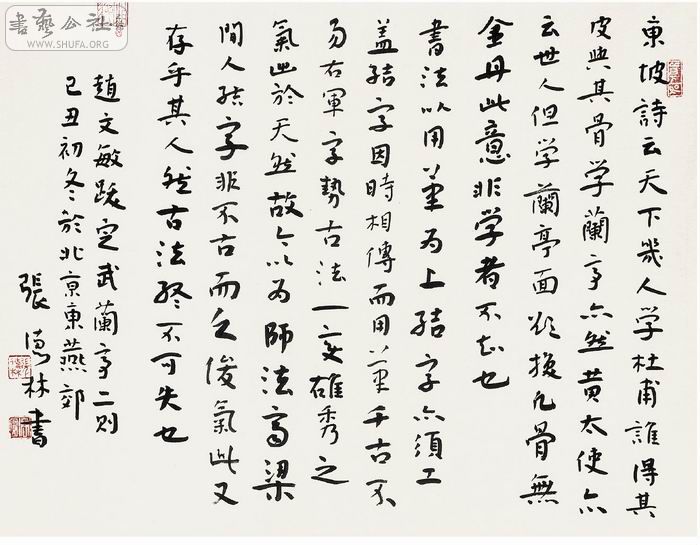 東坡詩云天下幾人学杜甫誰得其
皮與其骨学蘭亭亦然黄太史亦
云世人但学蘭亭面欲換凡骨無
金丹此意非学者不知也
書法以用筆为上結字亦須工
盖結字因時相傳而用筆千古不
易右軍字勢古法一变雄秀之
氣出於天然故今以为師法齊梁
間人結字非不古而乏俊氣此又
存乎其人然古法終不可失也
趙文敏跋定武蘭亭二則
己丑初冬於北京東燕郊
張
林書
書藝公社
WWW.SHUFA.ORG